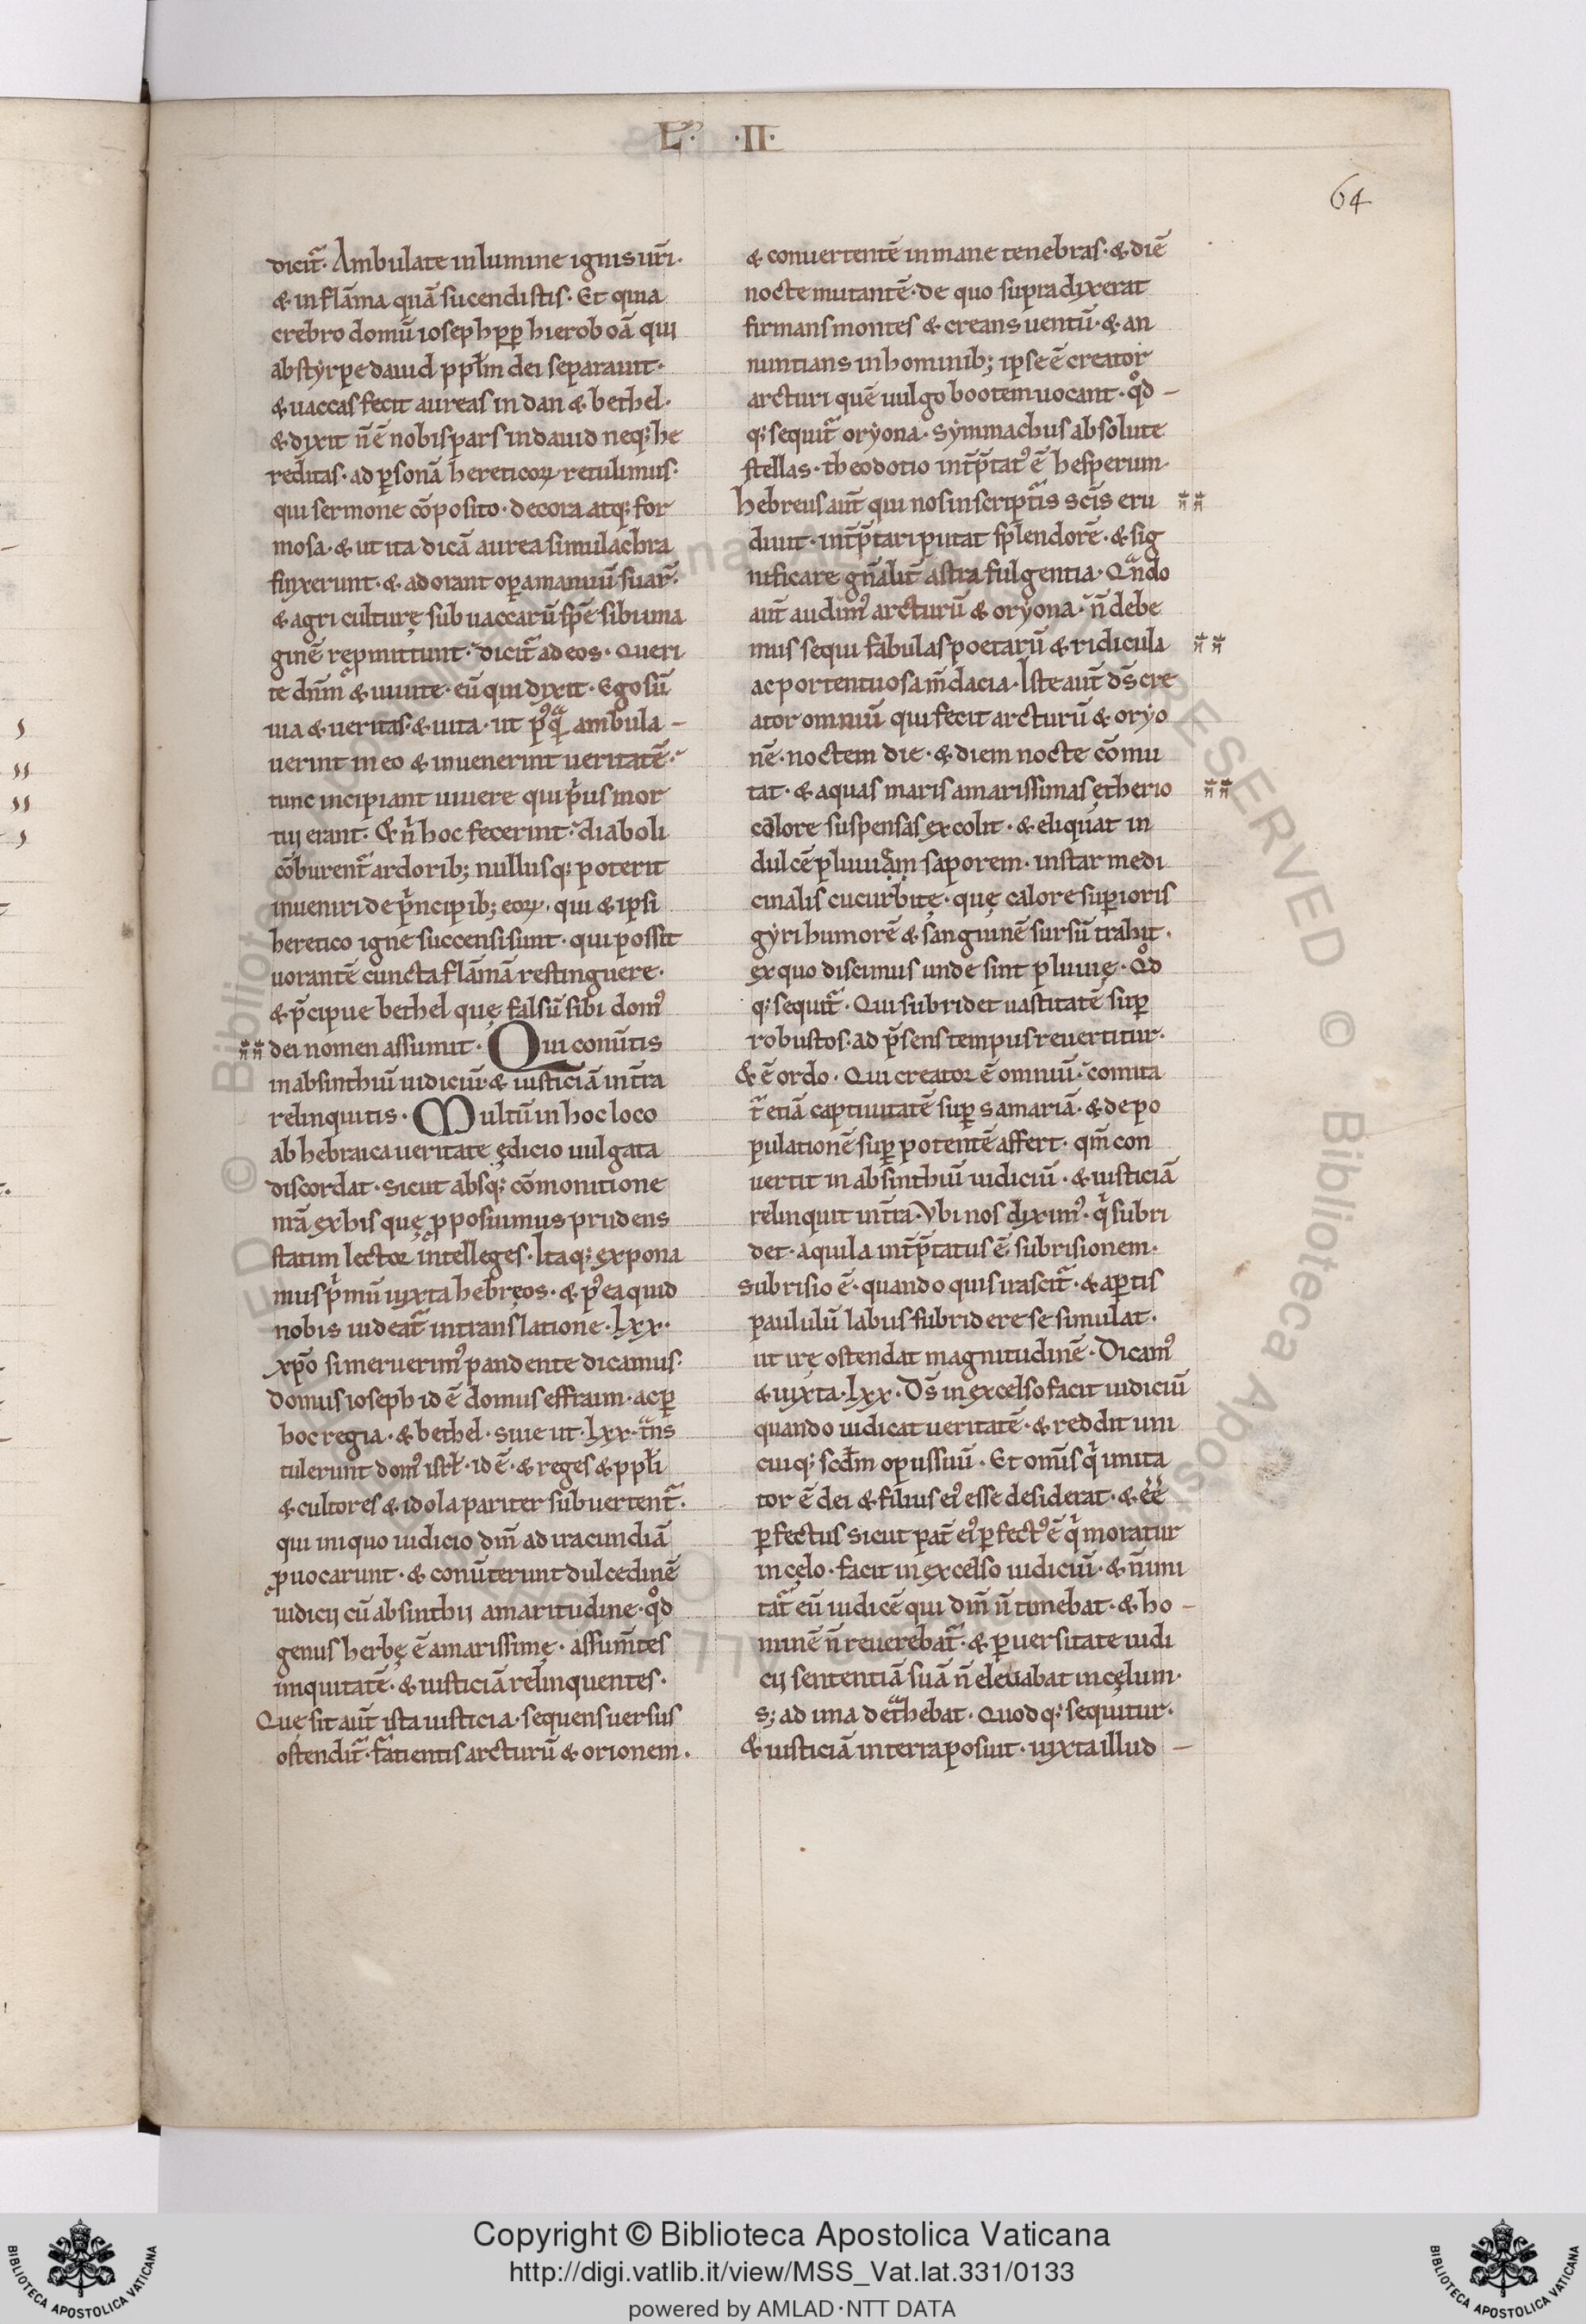 L. ·II·
64
dicit̃. Ambulate in lumine ignis ur̃i.
& in flãma quã sucendistis. Et quia
crebro domũ ioseph pꝑ hieroboã qui
ab styrpe dauid ppl̃m dei separauit.
& uaccas fecit aureas in dan & bethel.
& dixit ñ ẽ nobis pars in dauid neq; he
reditas. ad ꝑsonã hereticoꝝ retulimus.
qui sermone cõposito. decora atq; for
mosa. & ut ita dicã aurea simulachra
finxerunt. & adorant opa manuũ suaꝝ.
& agri culturę sub uaccarũ spẽ sibi ima
ginẽ reꝓmittunt. dicit̃ ad eos. Queri
te dñm & uiuite. eũ qui dixit. Ego sũ
uia & ueritas & uita. ut pꝰqᵃ ambula –
uerint in eo & inuenerint ueritatẽ.
tunc incipiant uiuere qui pͥus mor
tui erant. & nͥ hoc fecerint. diaboli
cõburent̃ ardorib; nullusq; poterit
inueniri de pͥncipib; eoꝝ. qui & ipsi
heretico igne succensi sunt. qui possit
uorantẽ cuncta flãmã restinguere.
& p̃cipue bethel quę falsũ sibi domꝰ
dei nomen assumit. Qui conũtis
in absinthiũ iudiciũ & iusticiã in t̃ra
relinquitis. Multũ in hoc loco
ab hebraica ueritate ędicio uulgata
discordat. sicut absq; cõmonitione
nr̃a ex his quę ꝓposuimus prudens
statim lector intelleges. Itaq; expona
mus pͥmũ iuxta hebręos. & pꝰea quid
nobis uideat̃ in translatione. lxx.
xp̃o si meruerimꝰ pandente dicamus.
Domus ioseph id ẽ domus effraim. ac ꝑ
hoc regia. & bethel. siue ut. lxx. tᵃns
tulerunt domꝰ isrl̃. id ẽ. & reges & ppl̃i
& cultores & idola pariter subuertent̃.
qui iniquo iudicio dm̃ ad iracundiã
ꝓuocarunt. & conũterunt dulcedinẽ
iudicij cũ absinthij amaritudine. qͦd
genus herbę ẽ amarissimę. assum̃tes
iniquitatẽ. & iusticiã relinquentes.
Quę sit aut̃ ista iusticia. sequens uersus
ostendit̃. fatientis arcturũ & orionem.
& conuertentẽ in mane tenebras. & diẽ
nocte mutantẽ. de quo supra dixerat
firmans montes & creans uentũ. & an
nuntians in hominib; ipse ẽ creator
arcturi quẽ uulgo bootem uocant. qͦd –
q; sequit̃ oryona. symmachus absolute
stellas. theodotio int̃p̃tatꝰ ẽ hesperum.
hebreus aut̃ qui nos in scripturis sc̃is eru
diuit. int̃p̃tari putat splendorẽ. & sig
nificare gñalit̃ astra fulgentia. Qᵃndo
aut̃ audimꝰ arcturũ & oryona. ñ debe
mus sequi fabulas poetarũ & ridicula
ac portentuosa m̃dacia. Iste aut̃ ds̃ cre
ator omniũ qui fecit arcturũ & oryo
nẽ. noctem die. & diem nocte cõmu
tat. & aquas maris amarissimas ętherio
calore suspensas excolit. & eliquat in
dulcẽ pluuiam saporem. instar medi
cinalis cucurbitę. quę calore superioris
gyri humorẽ & sanguinẽ sursũ trahit.
ex quo discimus unde sint pluuię. Qͦd
q; sequit̃. Qui subridet uastitatẽ suꝑ
robustos. ad p̃sens tempus reuertitur.
& ẽ ordo. Qui creator ẽ omniũ. comita
t̃ etiã captiuitatẽ suꝑ samariã. & depo
pulationẽ suꝑ potentẽ affert. qm̃ con
uertit in absinthiũ iudiciũ. & iusticiã
relinquit in t̃ra. Vbi nos diximꝰ. qͥ subri
det. aquila int̃p̃tatus ẽ subrisionem.
Subrisio ẽ. quando quis irascit̃. & aꝑtis
paululũ labus subridere se simulat.
ut irę ostendat magnitudinẽ. Dicamꝰ
& iuxta. lxx. Ds̃ in excelso facit iudiciũ
quando iudicat ueritatẽ. & reddit uni
cuiq; scd̃m opus suũ. Et omis qͥ imita
tor ẽ dei & filius eiꝰ esse desiderat. & ẽẽ
ꝑfectus sicut pat̃ eiꝰ ꝑfectꝰ ẽ qͥ moratur
in cęlo. facit in excelso iudiciũ. & ñ imi
tat̃ eũ iudicẽ qui dm̃ ñ timebat. & ho –
minẽ ñ reuerebat̃. & ꝑuersitate iudi
cij sententiã suã ñ eleuabat in cęlum.
s; ad ima det̃hebat. Quodq; sequitur.
& iusticiã in terra posuit. iuxta illud –
Copyright © Biblioteca Apostolica Vaticana
http://digi.vatlib.it/view/MSS_Vat.lat.331/0133
powered by AMLAD·NTT DATA
BIBLIOTECA APOSTOLICA VATICANA
BIBLIOTECA APOSTOLICA VATICANA